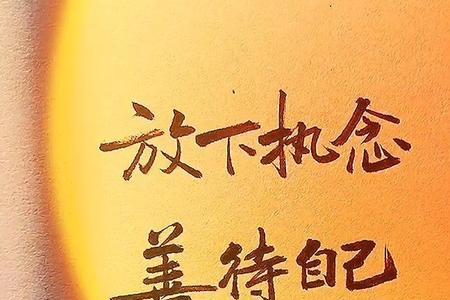 放下执念
善待自己